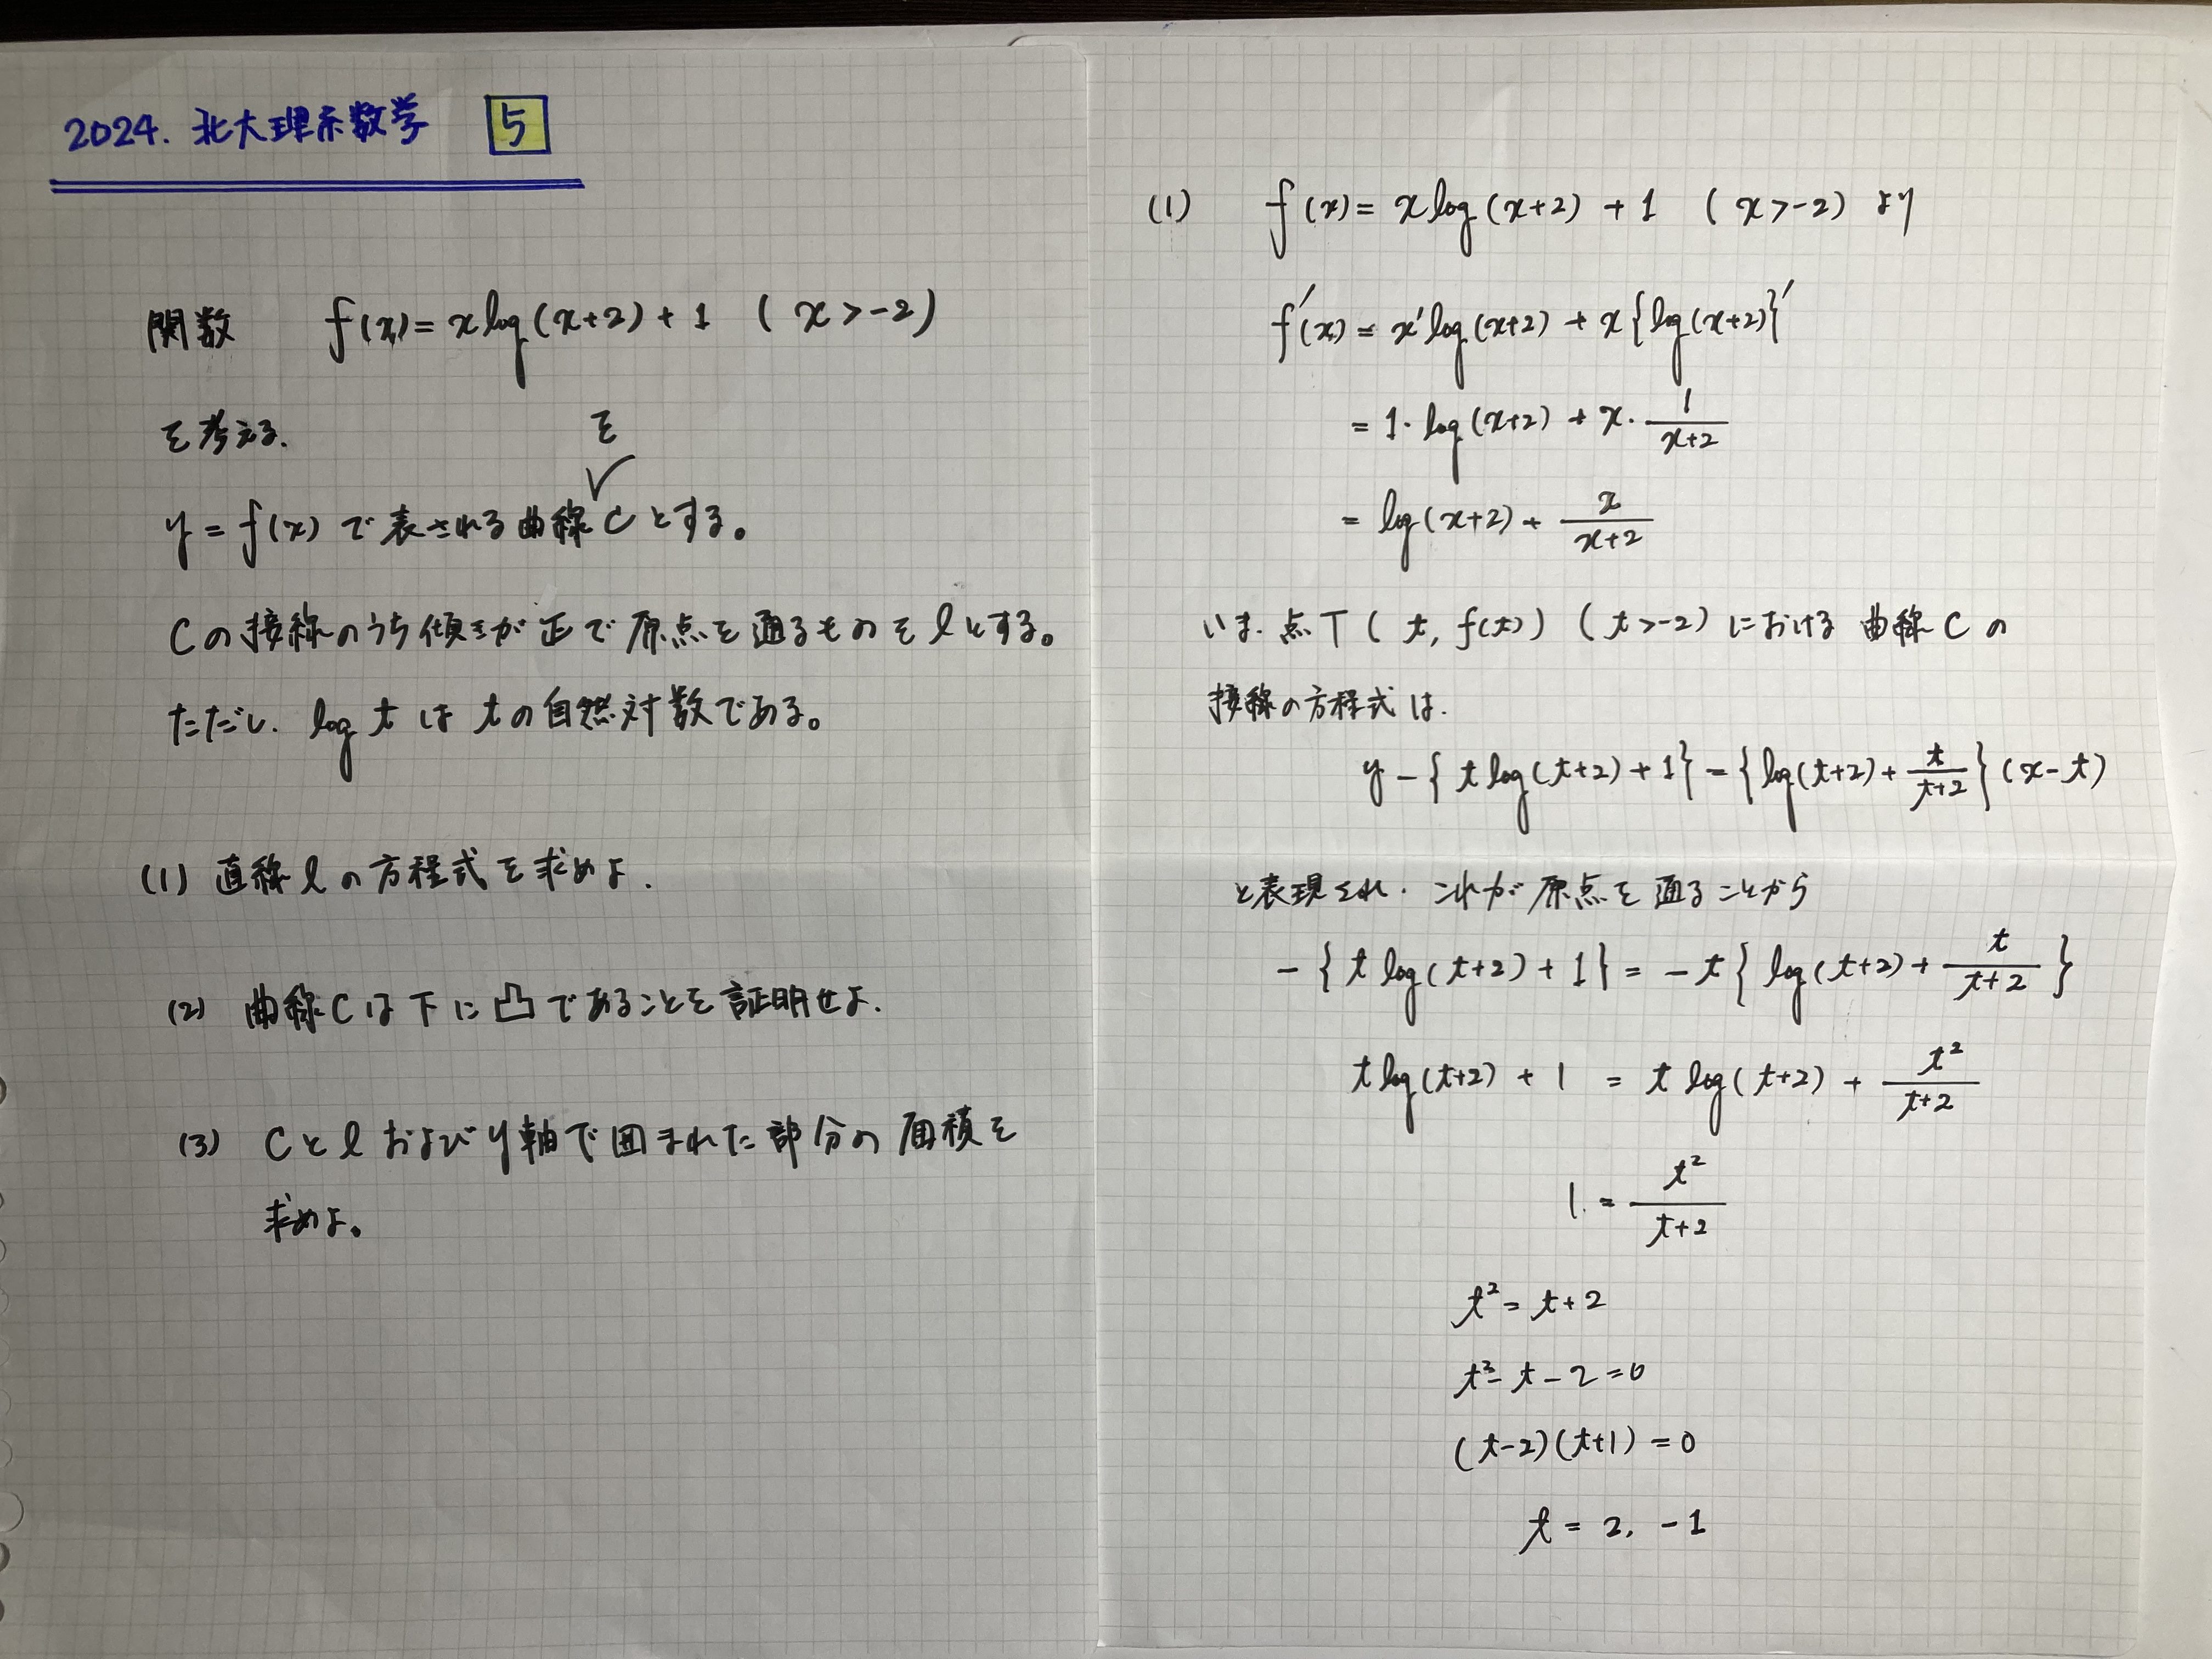 2024. 北大理系数学 5
関数 f(x) = x log(x+2) + 1 ( x > -2 )
を考える.
を
y = f(x) で表される曲線 C とする。
Cの接線のうち傾きが正で原点を通るものをlとする。
ただし. log t は tの自然対数である。
(1) 直線 l の方程式を求めよ.
(2) 曲線 C は下に凸であることを証明せよ.
(3) C と l および y 軸で囲まれた部分の面積を
求めよ。
(1) f(x) = x log(x+2) + 1 ( x > -2 ) より
f'(x) = x' log(x+2) + x{log(x+2)}'
= 1・log(x+2) + x・1/(x+2)
= log(x+2) + x/(x+2)
いま. 点T ( t, f(t) ) ( t > -2 ) における 曲線 C の
接線の方程式は.
y - { t log(t+2) + 1 } = { log(t+2) + t/(t+2) } (x - t)
と表現され. これが原点を通ることから
- { t log(t+2) + 1 } = - t { log(t+2) + t/(t+2) }
t log(t+2) + 1 = t log(t+2) + t²/(t+2)
1 = t²/(t+2)
t² = t+2
t² - t - 2 = 0
(t-2)(t+1) = 0
t = 2, -1